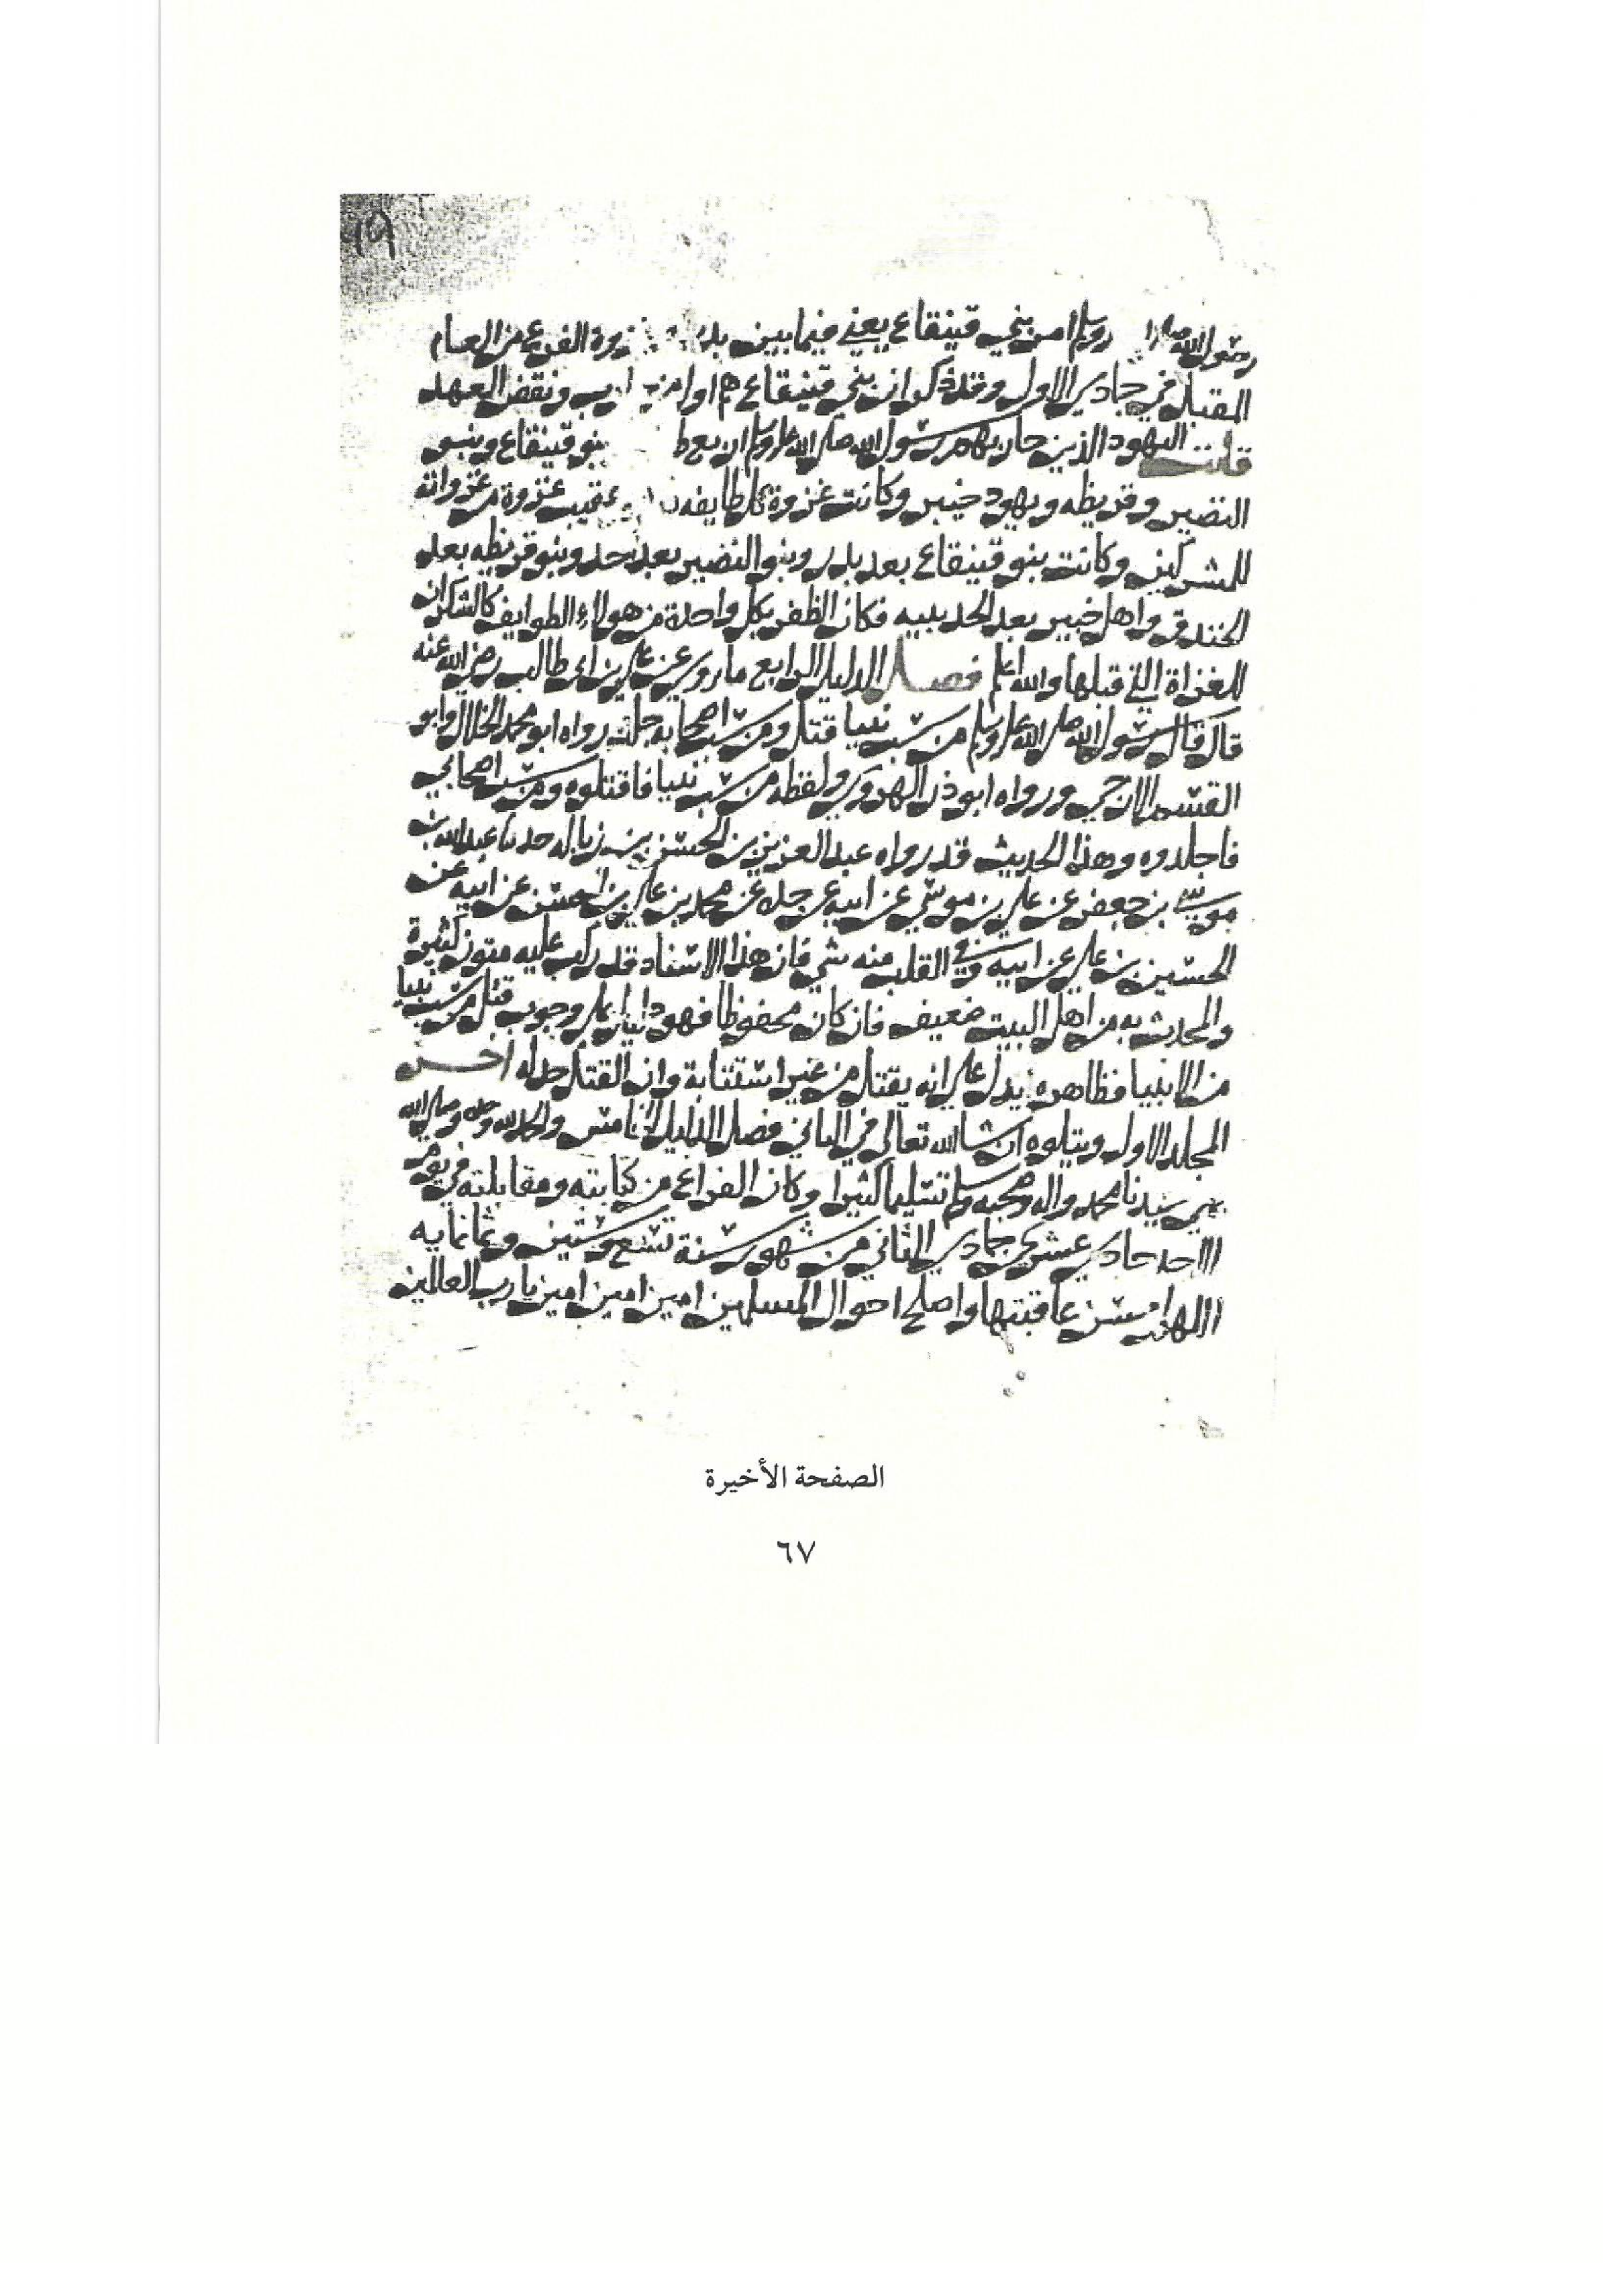 ١٩
رسول الله صلى وسلم امر بني قينقاع يعني فيما بين بدر وغزوة الفرع من العام
المقبل في جمادي الاول وقد ذكر ان بني قينقاع هم اول من ونقض العهد
قلت اليهود الذين حاربهم رسول الله صلى الله عليه وسلم اربع بنو قينقاع وبنو
النضير وقريظه ويهود خيبر وكانت غزوة كل طايفه عقيب غزوة من غزواته
للمشركين وكانت بنو قينقاع بعد بدر وبنو النضير بعد احد وبنو قريظه بعد
الخندق واهل خيبر بعد الحديبيه فكان الظفر بكل واحدة من هولاء الطوايف كالشكران
للغزاة التي قبلها والله اعلم فصل الدليل الرابع ما روي عن علي بن ابي طالب رضي الله عنه
قال قال رسول الله صلى الله عليه وسلم من سب نبيا قتل ومن سب اصحابه جلد رواه ابو محمد الخلال وابو
القسم الازجي ورواه ابو ذر الهروي ولفظه من سب نبيا فاقتلوه ومن سب اصحابي
فاجلدوه وهذا الحديث قد رواه عبد العزيز بن الحسن بن زباله حدثنا عبد الله بن
موسى بن جعفر عن علي بن موسى عن ابيه عن جده عن محمد بن علي بن الحسين عن ابيه عن
الحسين بن علي عن ابيه وفي القلب منه شي فان هذا الاسناد قد ركب عليه متون كثيرة
والمحدث به من اهل البيت ضعيف فان كان محفوظا فهو دليل على وجوب قتل من سب نبيا
من الانبيا فظاهره يدل على انه يقتل من غير استتابة وان القتل حد له اخر
المجلد الاول ويتلوه ان شا الله تعالى في الثاني فصل الدليل الخامس والحمد لله وحده وصلى الله
على سيدنا محمد واله وصحبه وسلم تسليما كثيرا وكان الفراغ من كتابته ومقابلته في يوم
الاحد حادي عشري جمادي الثاني من شهور سنة تسع وستين وثمانمايه
اللهم احسن عاقبتها واصلح احوال المسلمين امين امين امين يا رب العالمين
الصفحة الأخيرة
٦٧